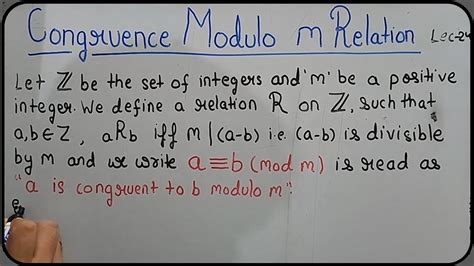 Congruence Modulo m Relation Lec-24
Let ℤ be the set of integers and 'm' be a positive
integer. We define a relation R on ℤ, such that
a,b∈ℤ, aRb iff m|(a-b) i.e. (a-b) is divisible
by m and we write a≡b (mod m) is read as
"a is congruent to b modulo m".